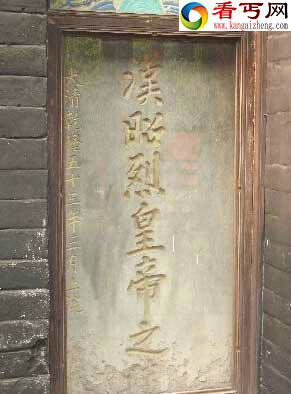 看丐网
www.kangaizheng.com
漢昭烈皇帝之
大清乾隆五十三年二月